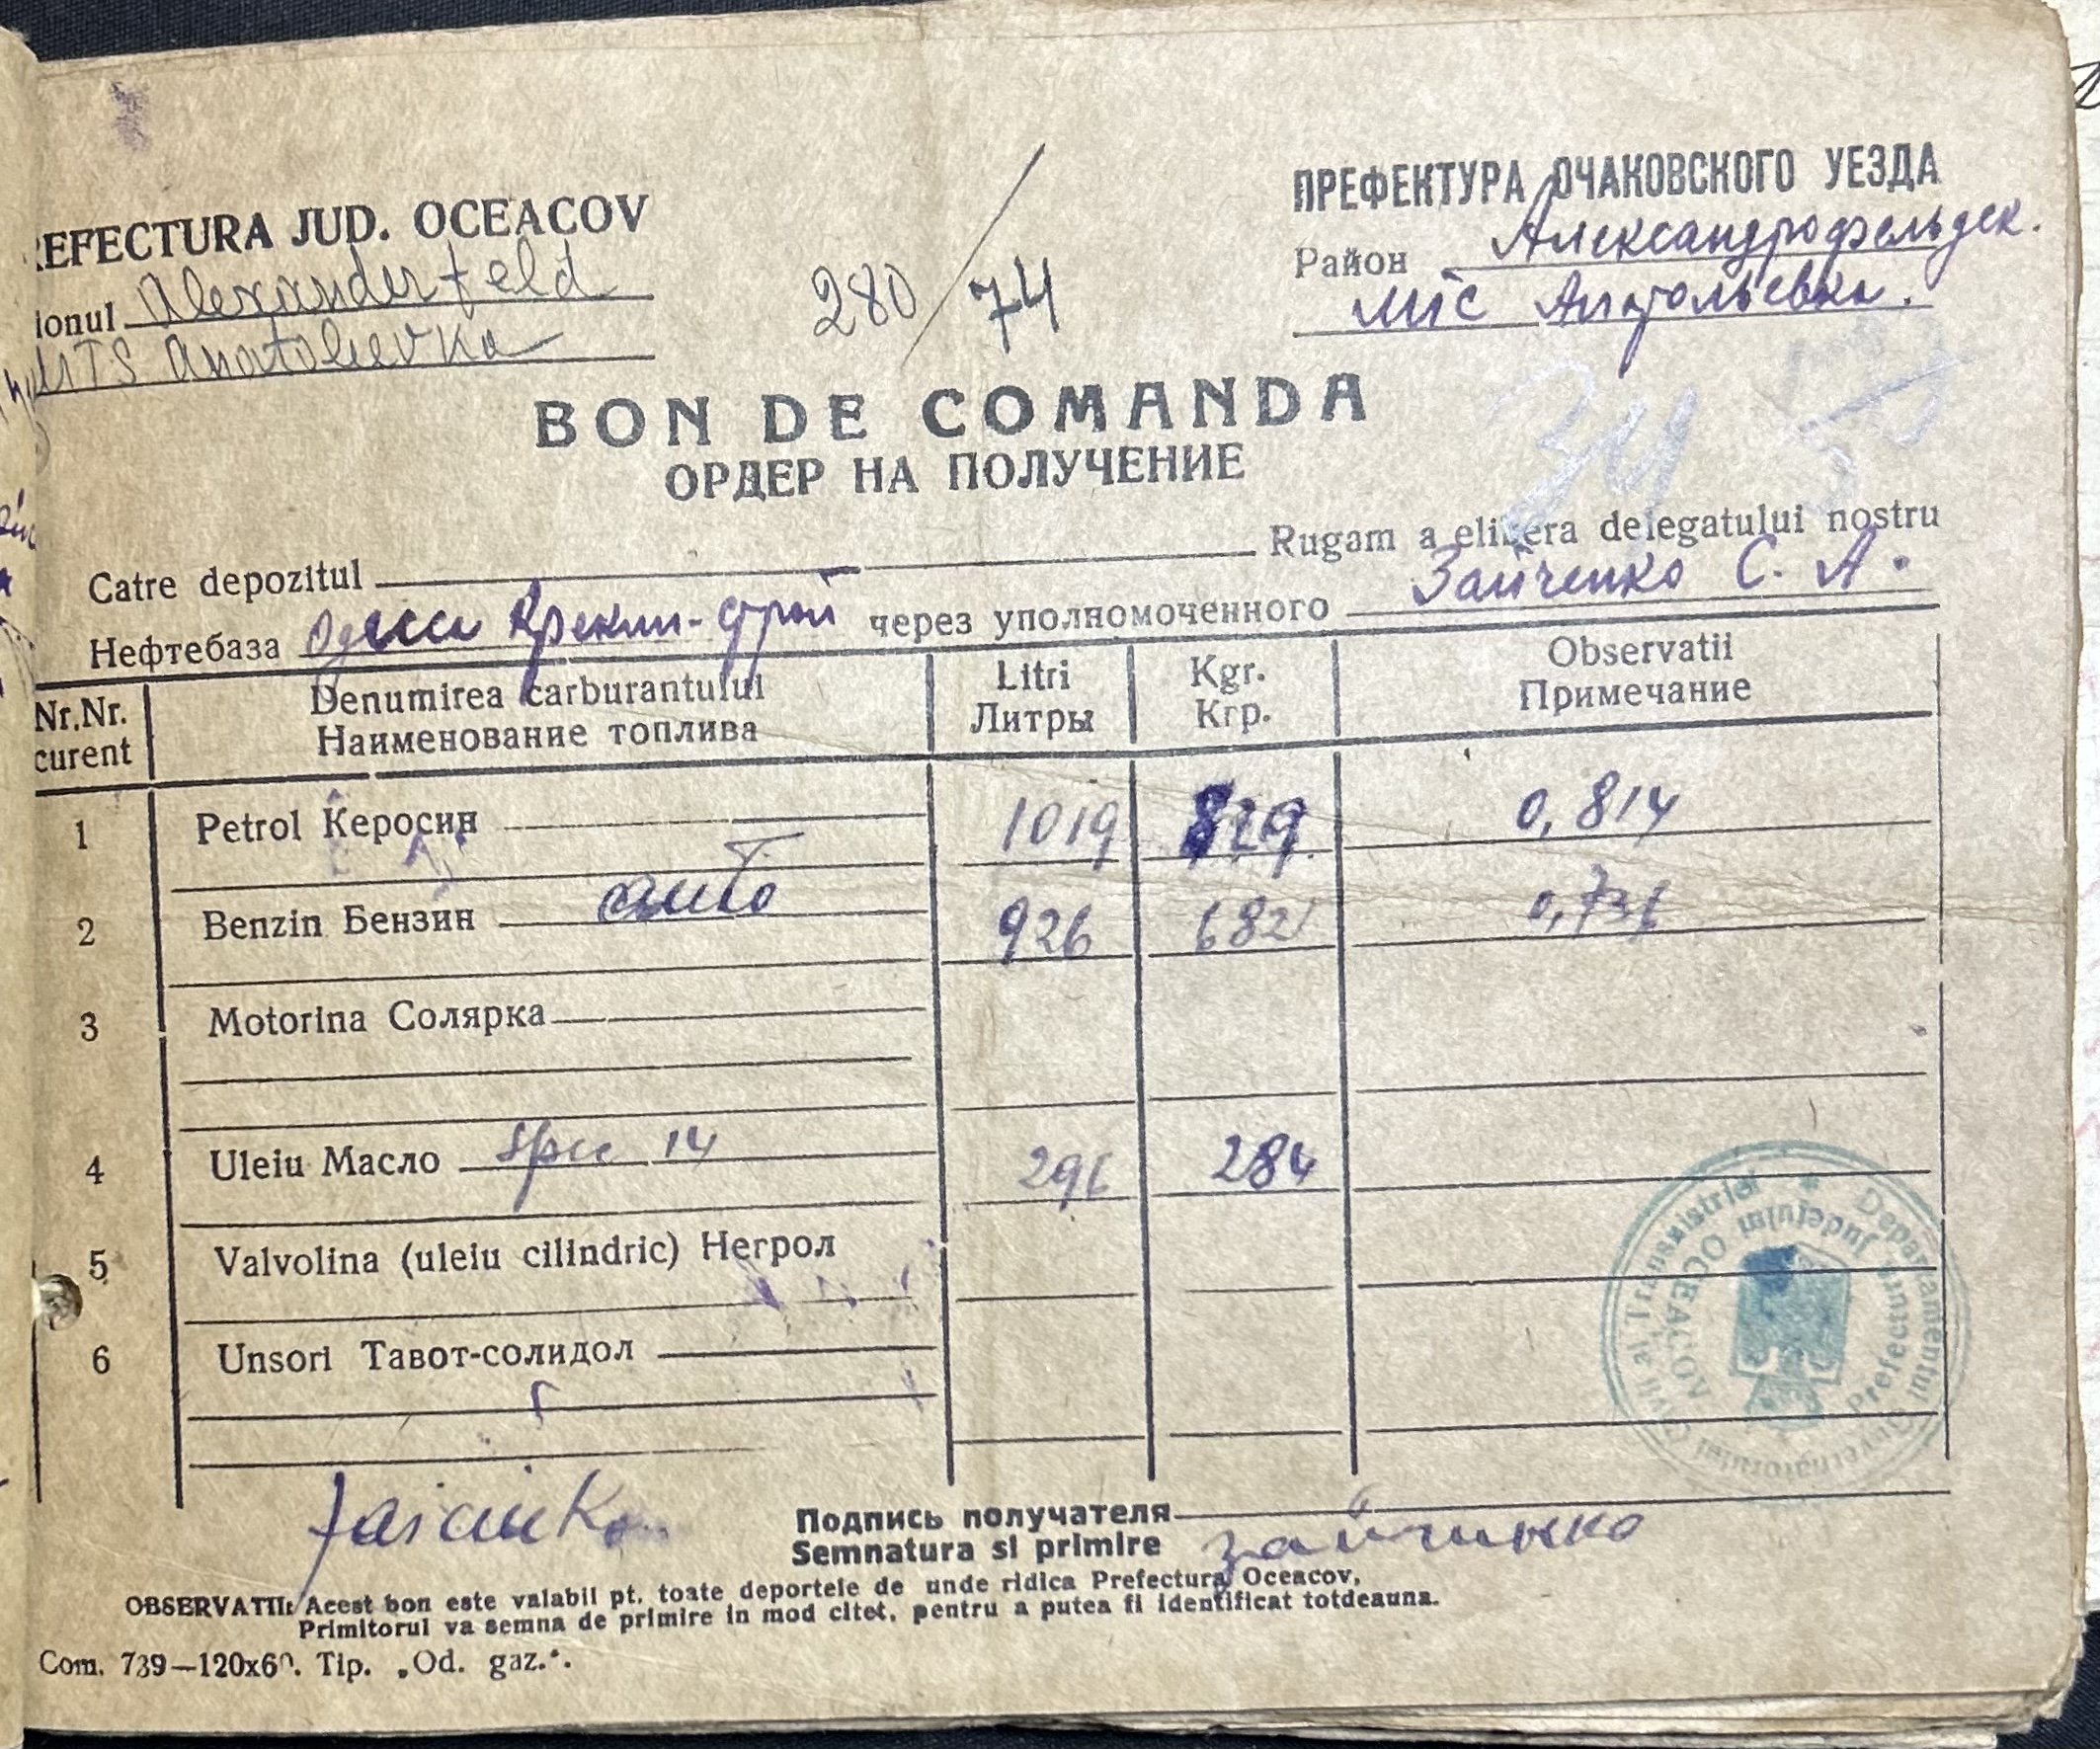 REFECTURA JUD. OCEACOV
ionul Alexanderfeld
MTS Anatolievka
280/74
ПРЕФЕКТУРА ОЧАКОВСКОГО УЕЗДА
Район Александрофельдск.
мтс Анатольевка.
BON DE COMANDA
ОРДЕР НА ПОЛУЧЕНИЕ
Catre depozitul Rugam a elibera delegatului nostru
Нефтебаза Одесса через уполномоченного Зайченко С. А.
Nr.Nr. curent Denumirea carburantului Litri Kgr. Observatii
Наименование топлива Литры Кгр. Примечание
1 Petrol Керосин 1019 829 0,814
2 Benzin Бензин auto 926 682 0,736
3 Motorina Солярка
4 Uleiu Масло 14 296 284
5 Valvolina (uleiu cilindric) Негрол
6 Unsori Тавот-солидол
Подпись получателя
Semnatura si primire зайчинко
OBSERVATII: Acest bon este valabil pt. toate deportele de unde ridica Prefectura Oceacov,
Primitorul va semna de primire in mod citet, pentru a putea fi identificat totdeauna.
Com. 739—120x60. Tip. „Od. gaz.".
Guvernatorului Civil al Transnistriei * Departamentul
Prefectura Judeţului OCEACOV